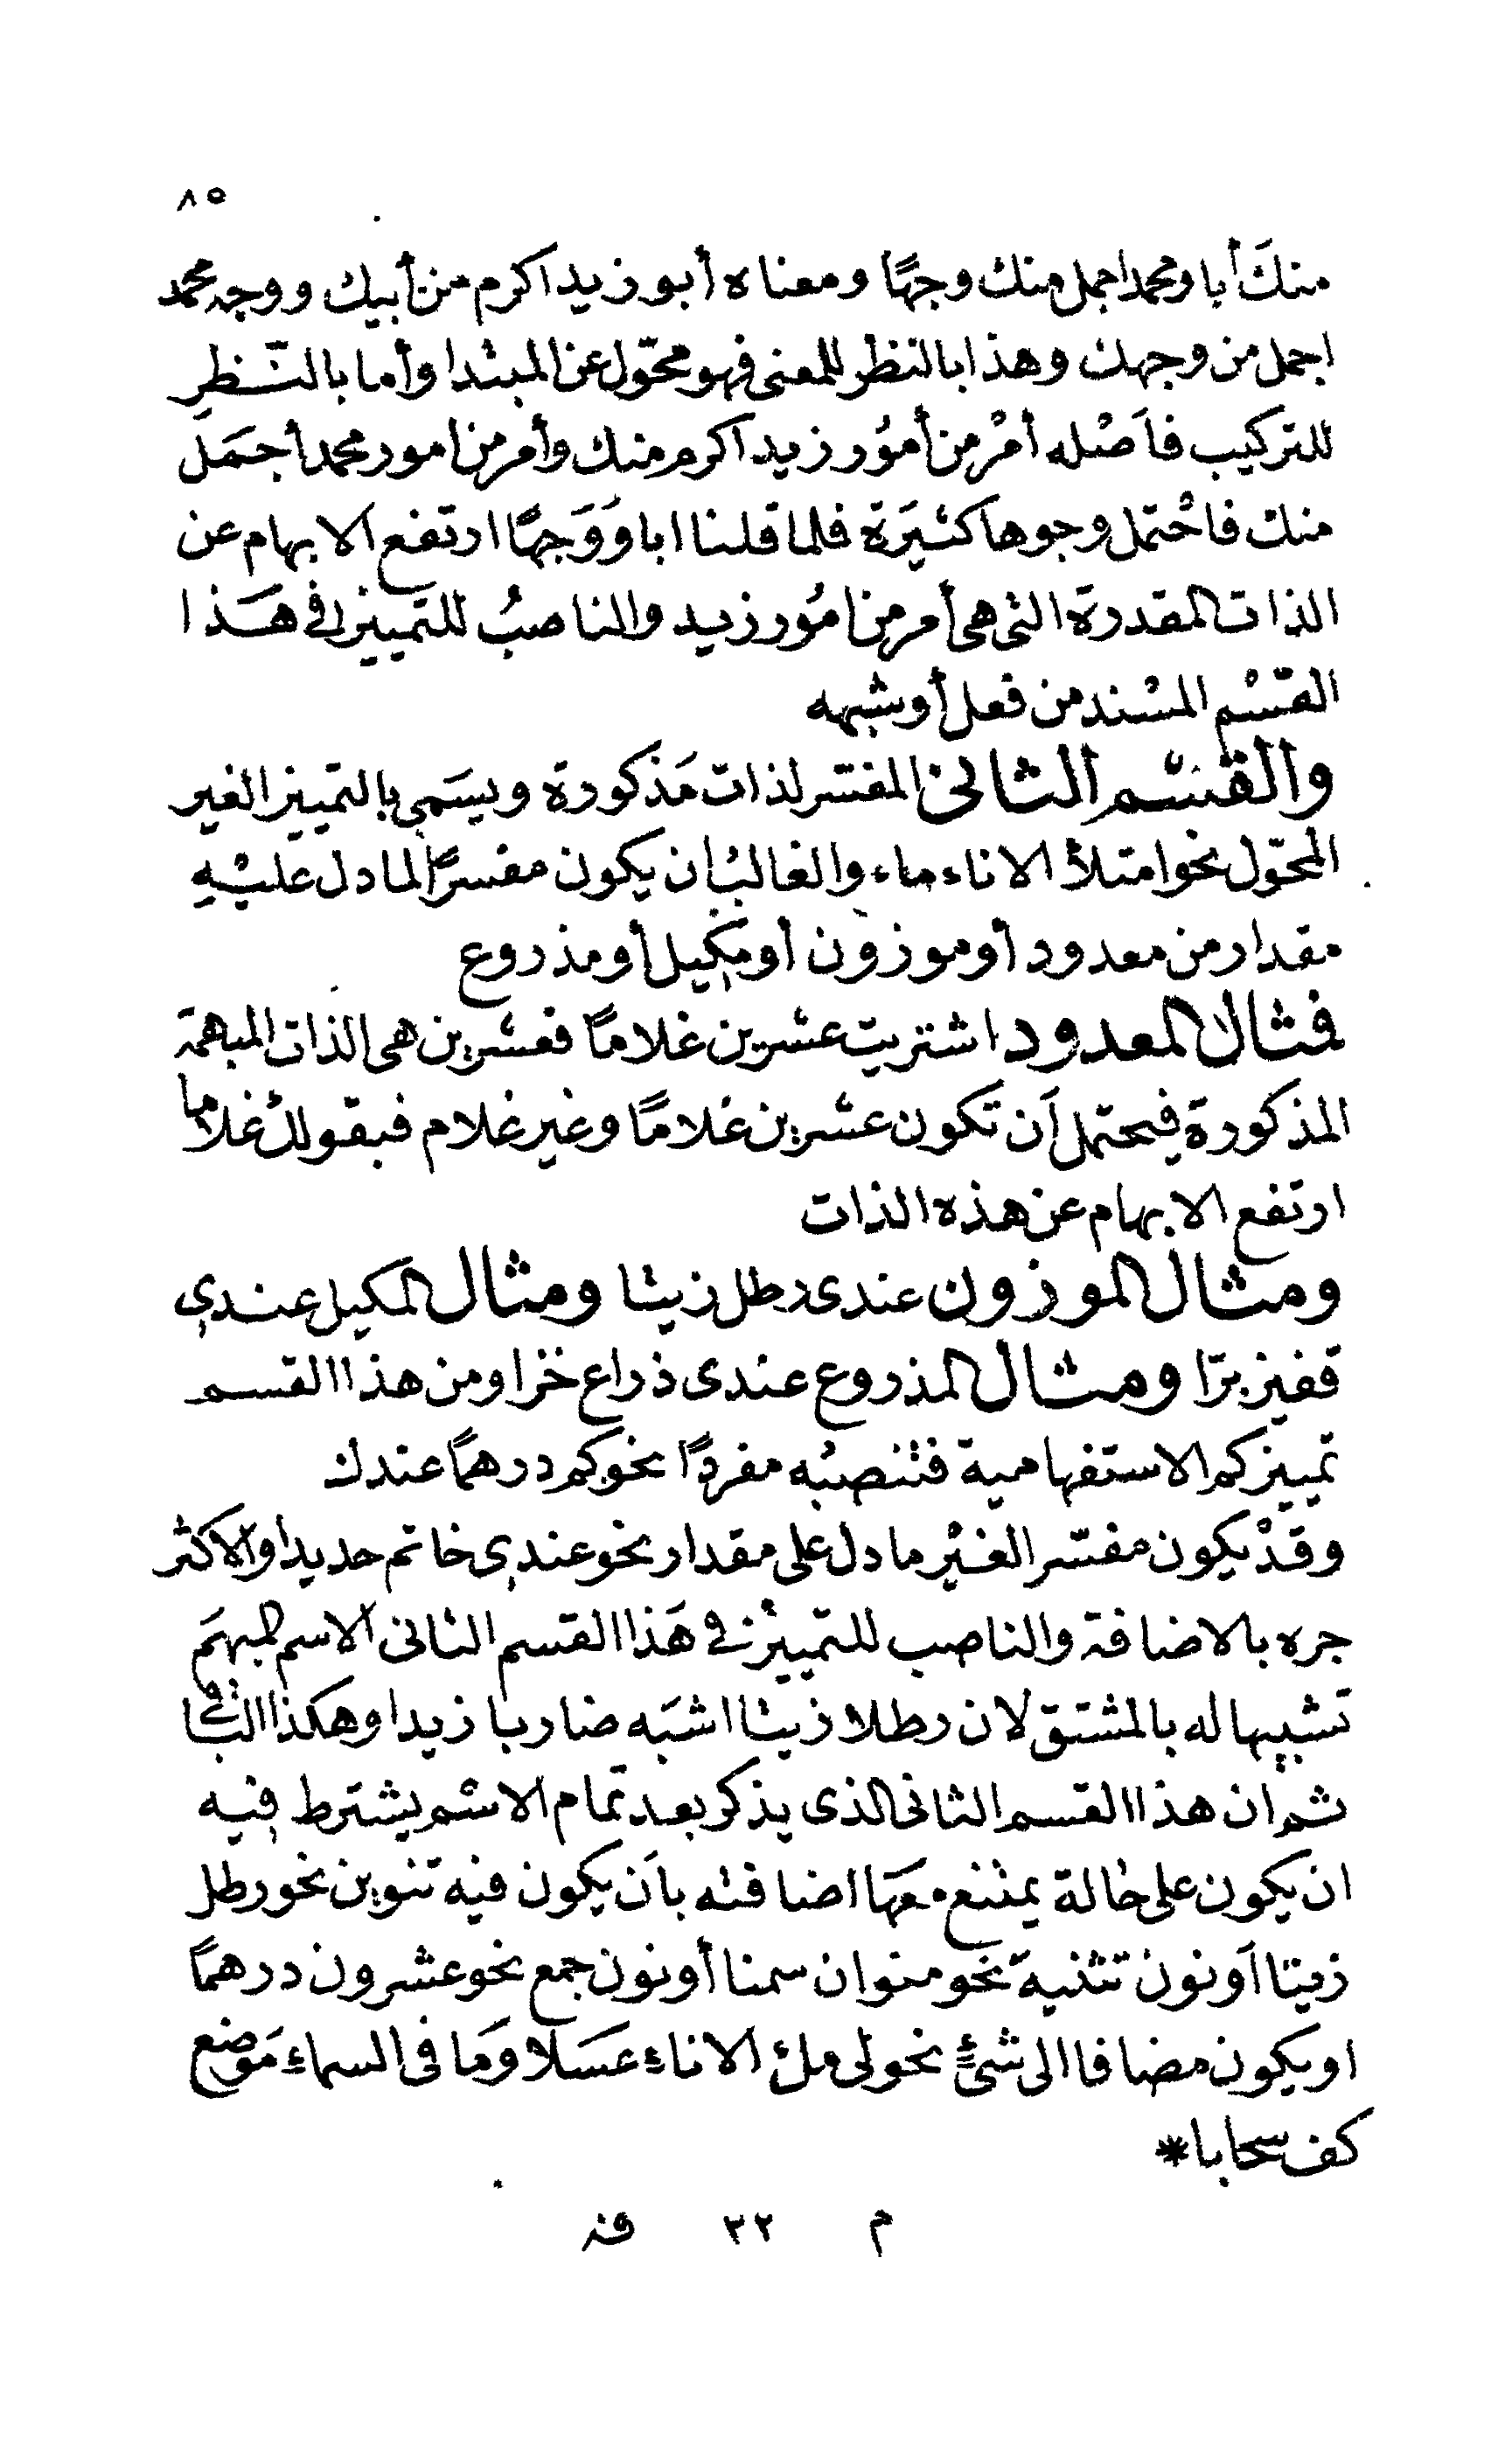 ٨٥
منكَ أبا ومحمد اجمل منك وجهًا ومعناه أبو زيد اكرم من أبيك ووجه محمد
اجمل من وجهك وهذا بالنظر للمعنى فهو محّول عن المبتدا وأما بالنّظرِ
للتركيب فأصْله أمْر من أمُور زيد اكرم منك وأمر من امور محمد أجمَل
منك فاحْتمل وجوها كثيَرة فلما قلنا ابا وَوَجهًا ارتفع الابهام عن
الذات المقدرة التى هى أمر من امُور زيد والناصبُ للتمييز فى هَذا
القسْم المسْند من فعل أو شبهه
والقسْم الثانى المفسّر لذات مَذكورة ويسَمى بالتمييز الغير
المحّول نحو امتلأ الاناء ماء والغالبُ ان يكون مفسرًا لما دل عليْهِ
مقدار من معدود أو موزون أو مكيل أو مذروع
فمثال المعدود اشتريت عشرين غلامًا فعشرين هى الذات المبهمة
المذكورة فيحتمل أن تكون عشرين غلامًا وغير غلام فبقولك غلاما
ارتفع الابهام عن هذه الذات
ومثال الموزون عندى رطل زيتا ومثال المكيل عندي
قفيز برّا ومثال المذروع عندى ذراع خزا ومن هذا القسم
تمييز كم الاستفهامية فتنصبُه مفردًا نحو كم درهمًا عندك
وقدْ يكون مفسّر الغيْر ما دل على مقدار نحو عندي خاتم حديدا والاكثر
جره بالاضافة والناصب للتمييْز فى هَذا القسم الثانى الاسم المبهَم
تشبيها له بالمشتق لان رطلا زيتا اشبَه ضاربا زيدا وهكذا الباقى
ثم ان هذا القسم الثانى الذى يذكر بعد تمام الاسْم يشترط فيه
ان يكون على حالة يمتنع معهَا اضافته بأن يكون فيه تنوين نحو رطل
زيتا أو نون تثنية نحو منوان سمنا أو نون جمع نحو عشرون درهمًا
او يكون مضافا الى شئٍ نحو لى ملءُ الاناءِ عسَلا وَما فى السماءِ مَوضع
كف سحابا*
م ٢٢ فنـ